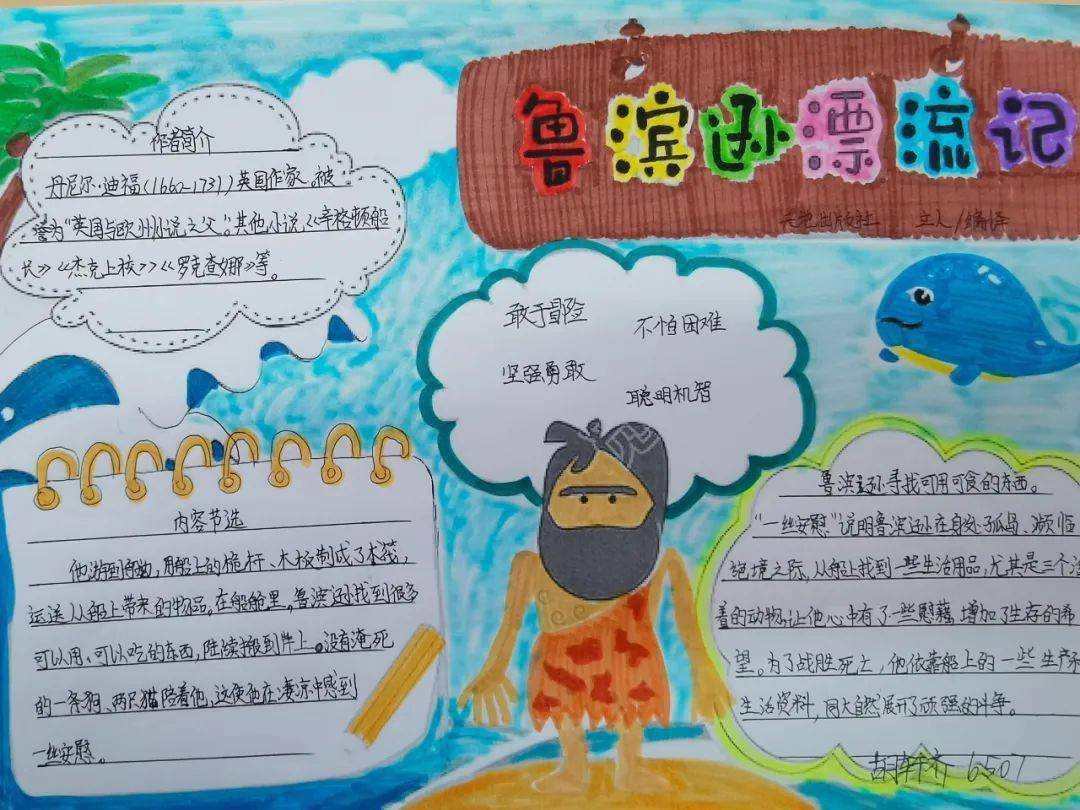 鲁滨逊漂流记
天地出版社 立人/编译
作者简介
丹尼尔·迪福(1660-1731)英国作家。被
誉为"英国与欧洲小说之父"。其他小说《辛格顿船
长》《杰克上校》《罗克查娜》等。
敢于冒险
不怕困难
坚强勇敢
聪明机智
内容节选
他游到船边,用船上的桅杆、木板制成了木筏,
运送从船上带来的物品。在船舱里,鲁滨逊找到很多
可以用、可以吃的东西,陆续搬到上。没有淹死
的一条狗、两只猫陪着他,这使他在凄凉中感到
一丝安慰。
鲁滨逊寻找可用可食的东西。
"一丝安慰"说明鲁滨逊在身处孤岛、濒临
绝境之际,从船上找到一些生活用品,尤其是三个活
着的动物,让他心中有了一些慰藉,增加了生存的希
望。为了战胜死亡,他依靠船上的一些生产
生活资料,同大自然展开了顽强的斗争。
胡 6507